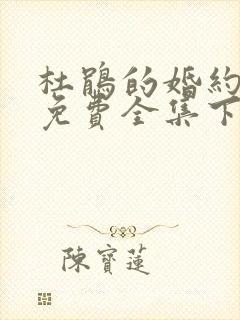 杜鵑的婚約
免費全集下
陳寶蓮